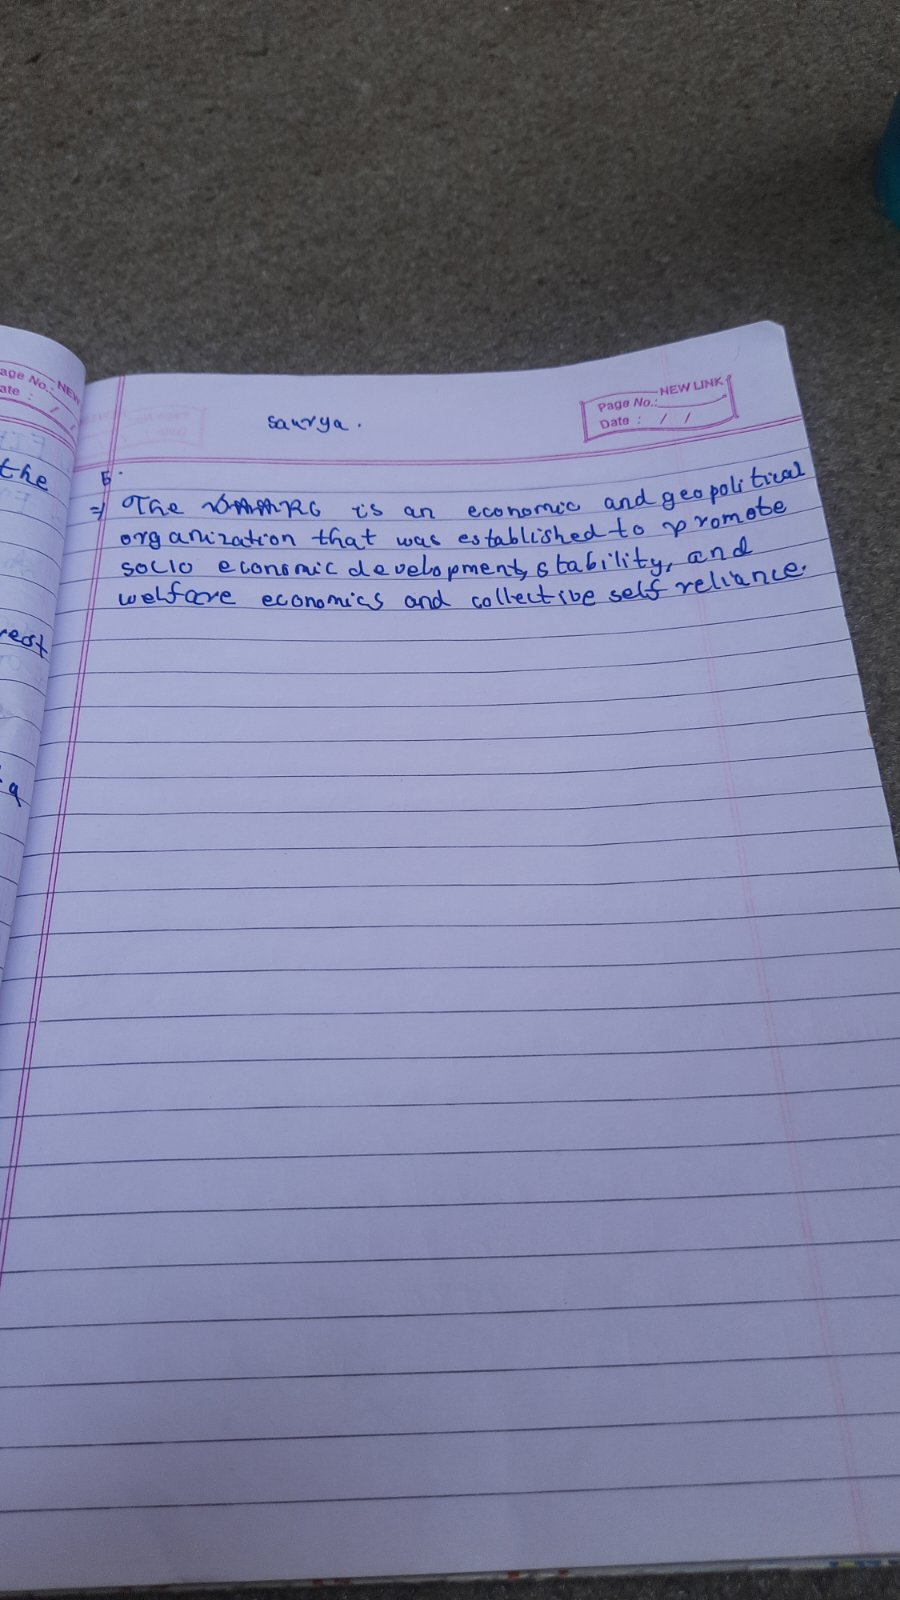 age No.: NEW
ate : / /
the
rest
a
saurya.
NEW LINK
Page No.:
Date : / /
5.
⇒ The SAARC is an economic and geopolitical
organization that was established to promote
socio economic development, stability, and
welfare economics and collective self reliance.